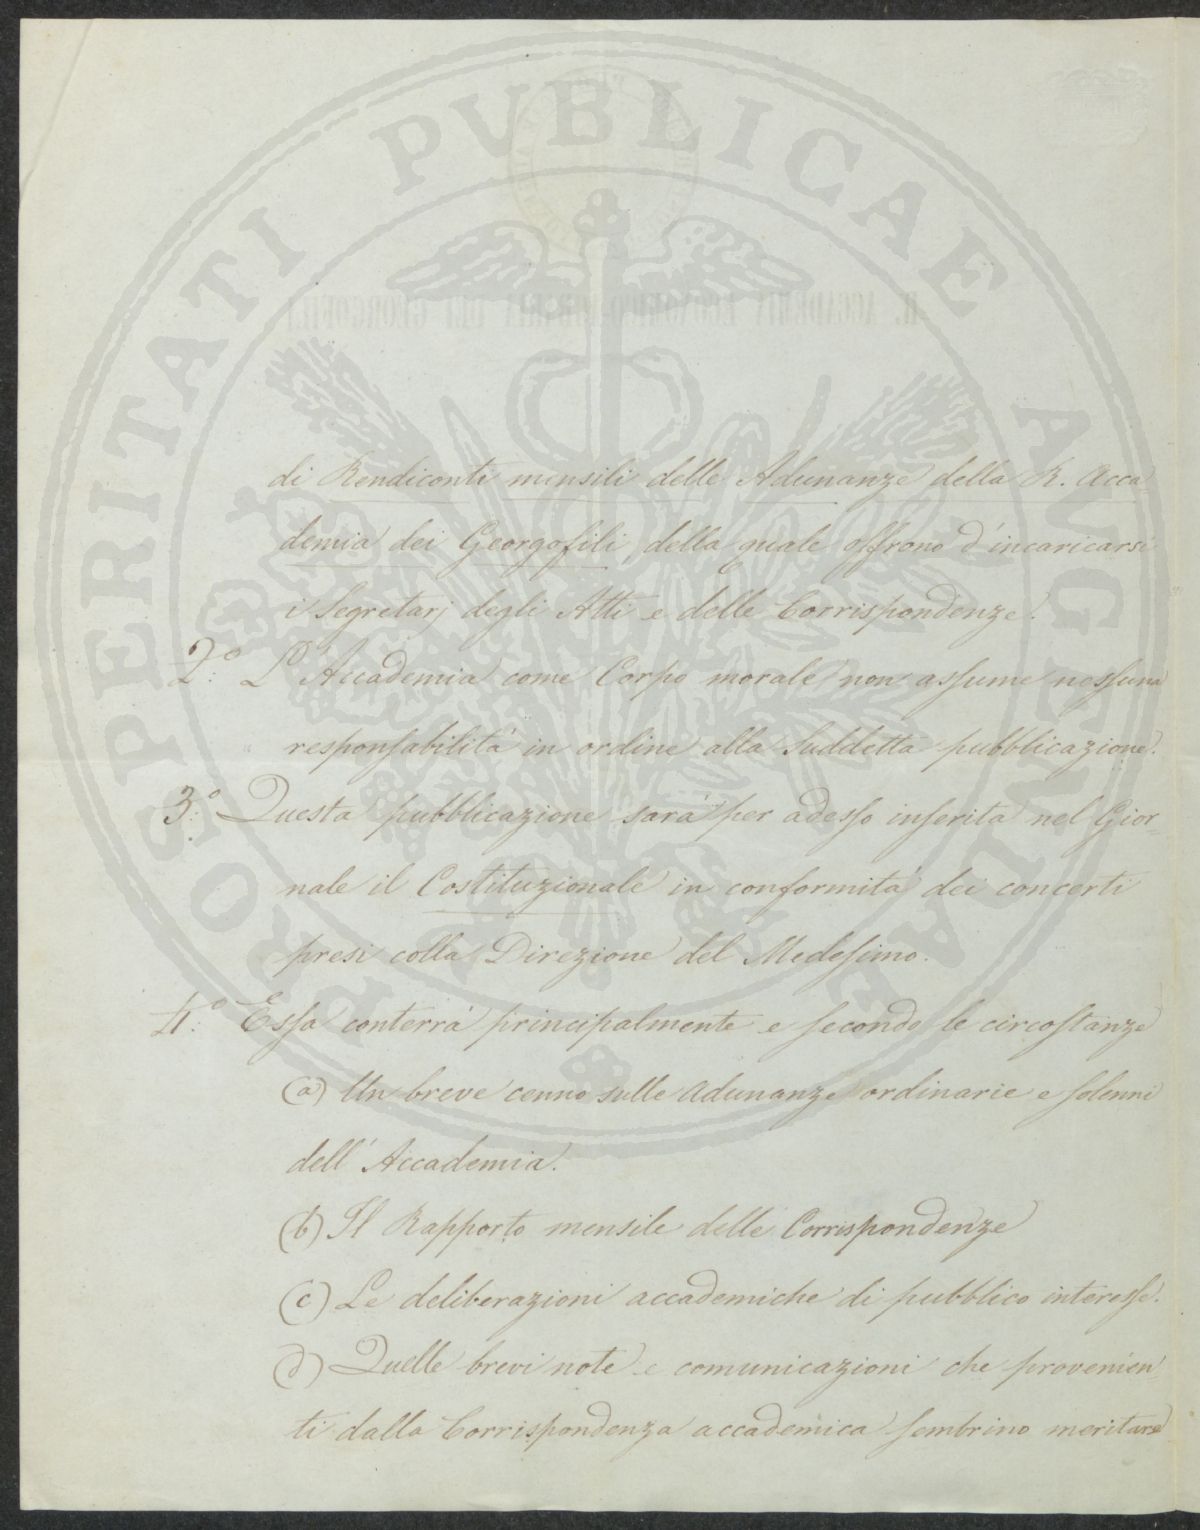 PROSPERITATI PUBLICAE AUGENDAE
di Rendiconti mensili delle Adunanze della R. Acca-
demia dei Georgofili, della quale offrono d'incaricarsi
i Segretarj degli Atti e delle Corrispondenze.
2.° L'Accademia come Corpo morale non assume nessuna
responsabilità in ordine alla Suddetta pubblicazione.
3.° Questa pubblicazione sarà per adesso inserita nel Gior-
nale il Costituzionale in conformità dei concerti
presi colla Direzione del Medesimo.
4.° Essa conterrà principalmente e secondo le circostanze
(a) Un breve cenno sulle Adunanze ordinarie e solenni
dell'Accademia.
(b) Il Rapporto mensile delle Corrispondenze
(c) Le deliberazioni accademiche di pubblico interesse.
(d) Quelle brevi note e comunicazioni che provenien-
ti dalla Corrispondenza accademica sembrino meritare